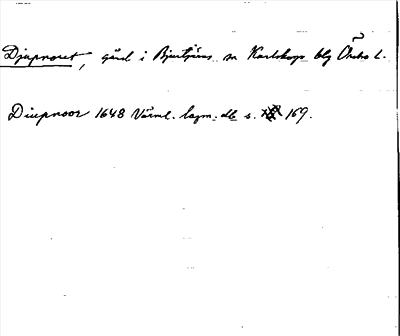 Djupnoret, gård i Bjurtjärns sn Karlskoga blg Örebro l.
Diupnoor 1648 Värml. lagm. db s. 169.